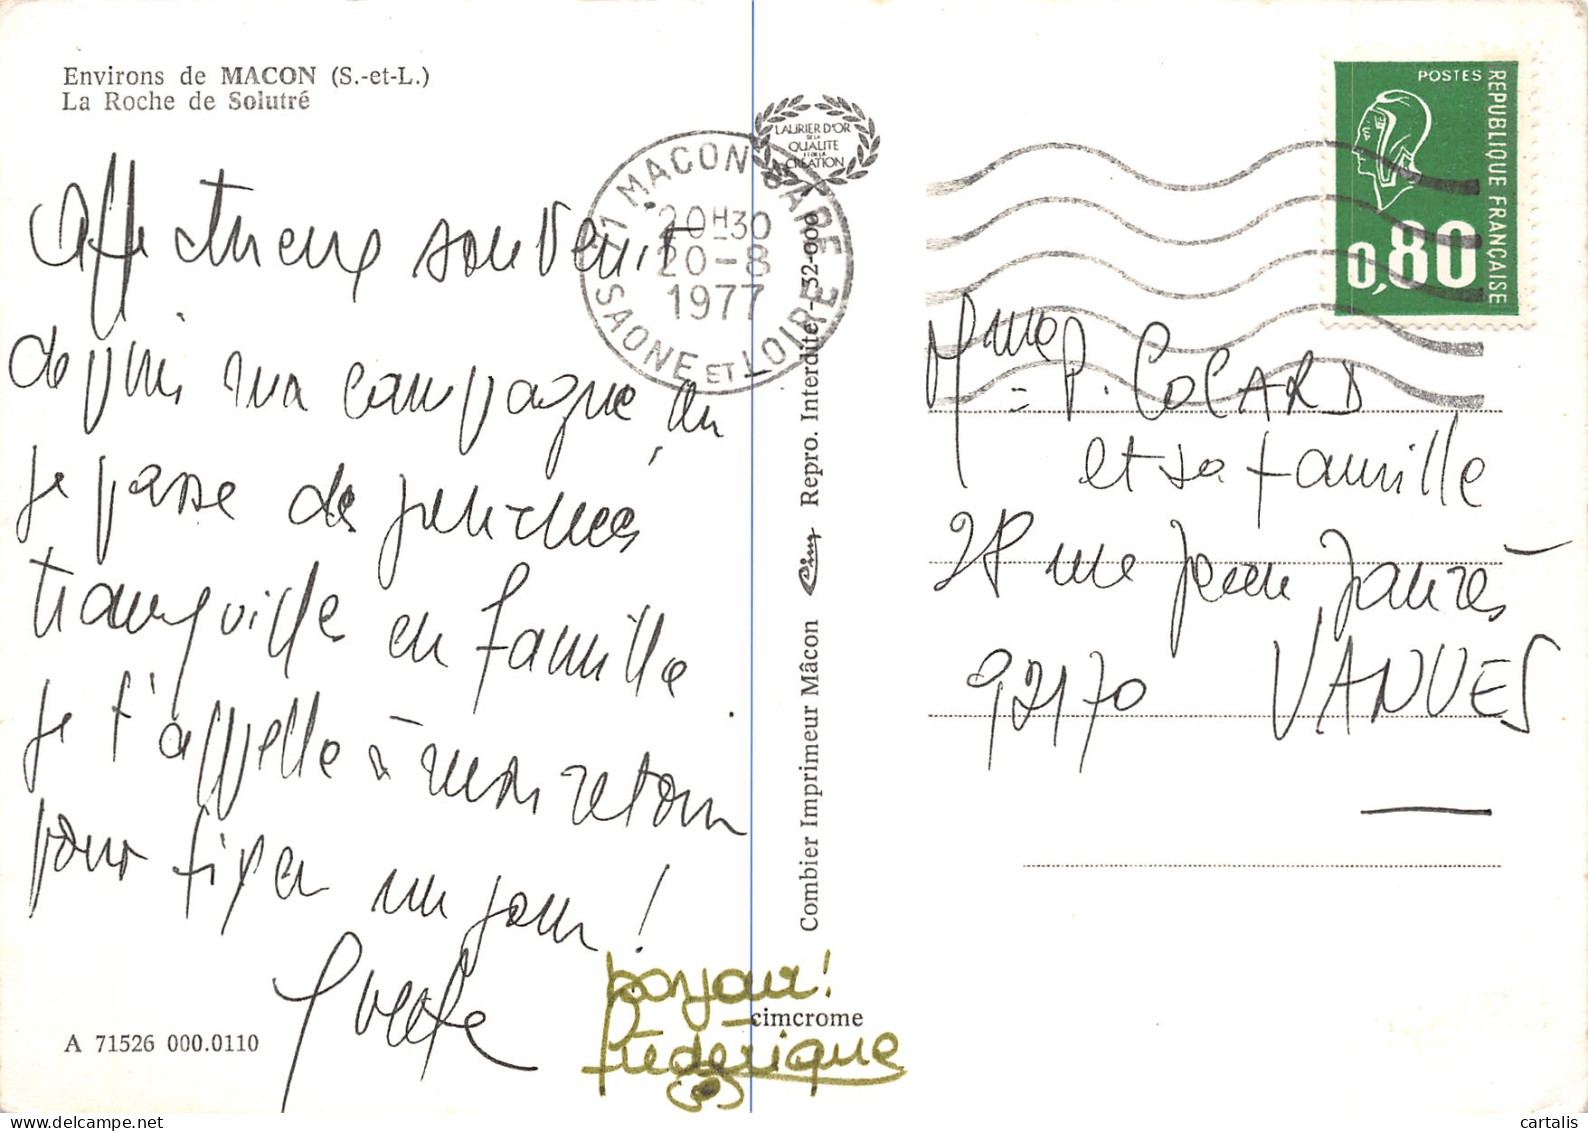 Environs de MACON (S.-et-L.)
La Roche de Solutré
Affectueux souvenir
depuis ma campagne où
je passe des journées
tranquilles en famille.
Je t'appelle à mon retour
pour fixer un jour !
Yvette
bonjour!
Frédérique
A 71526 000.0110
cimcrome
71 MACON GARE
20H30
20-8
1977
SAONE ET LOIRE
LAURIER D'OR
DE LA
QUALITE
ET DE LA
CREATION
Combier Imprimeur Mâcon Cim Repro. Interdite - 32-000
POSTES
REPUBLIQUE FRANÇAISE
0,80
Mme P. COLARD
et sa famille
28 rue Jean Jaurès
92170 VANVES
cartalis